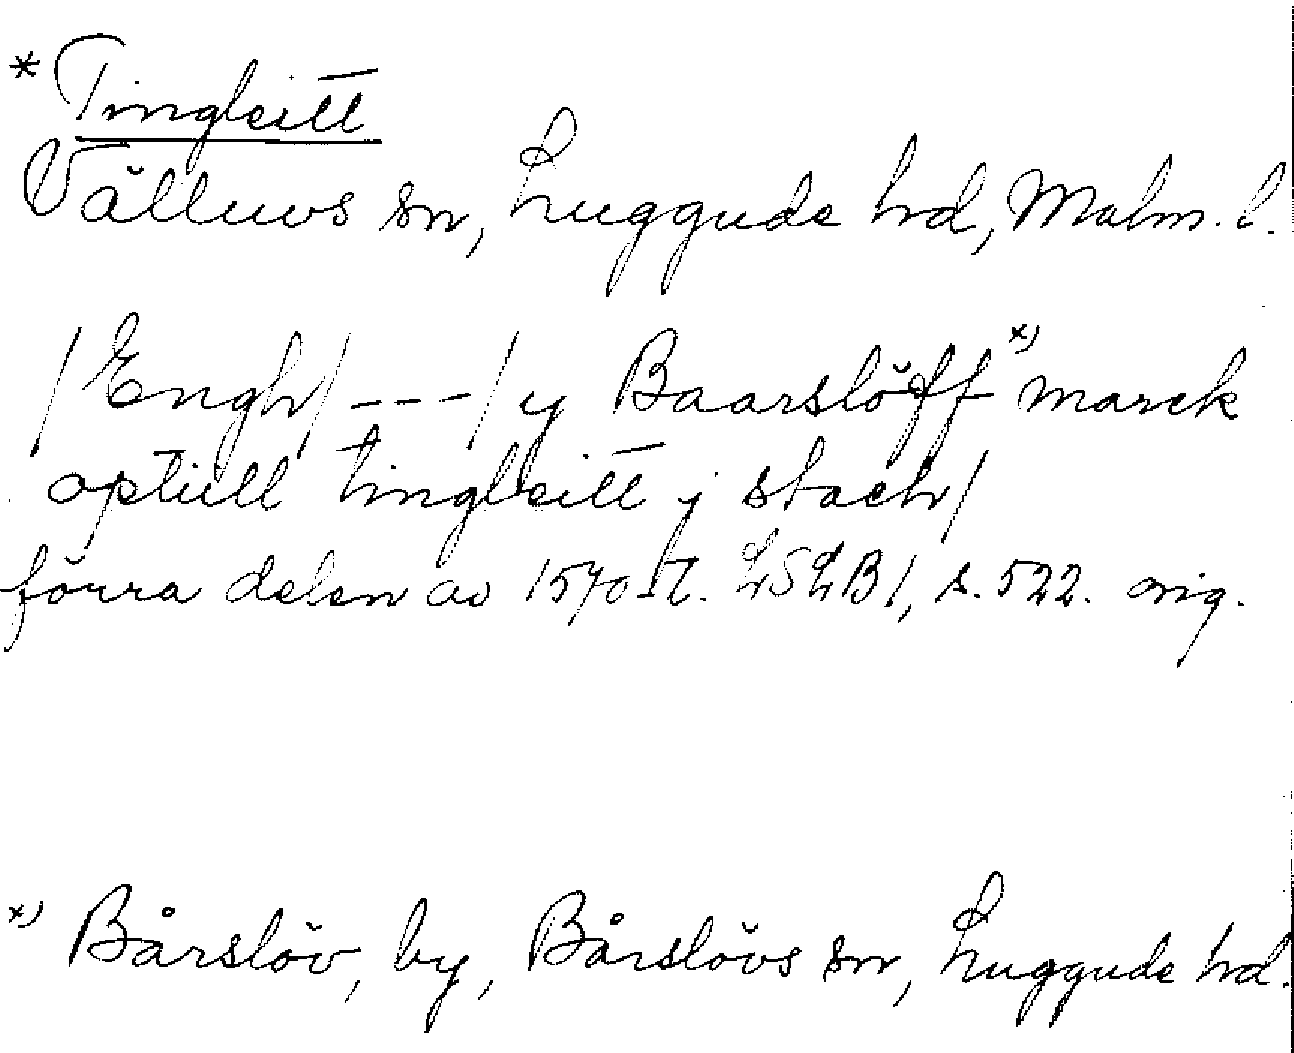 * Tingleitt
Välluvs sn, Luggude hd, Malm. l.
/Engh/ --- / y Baarslöff x) marck
optiill tingleitt j stach/
förra delen av 1570-t. LSLB1, s. 522. orig.
x) Bårslöv, by, Bårslövs sn, Luggude hd.